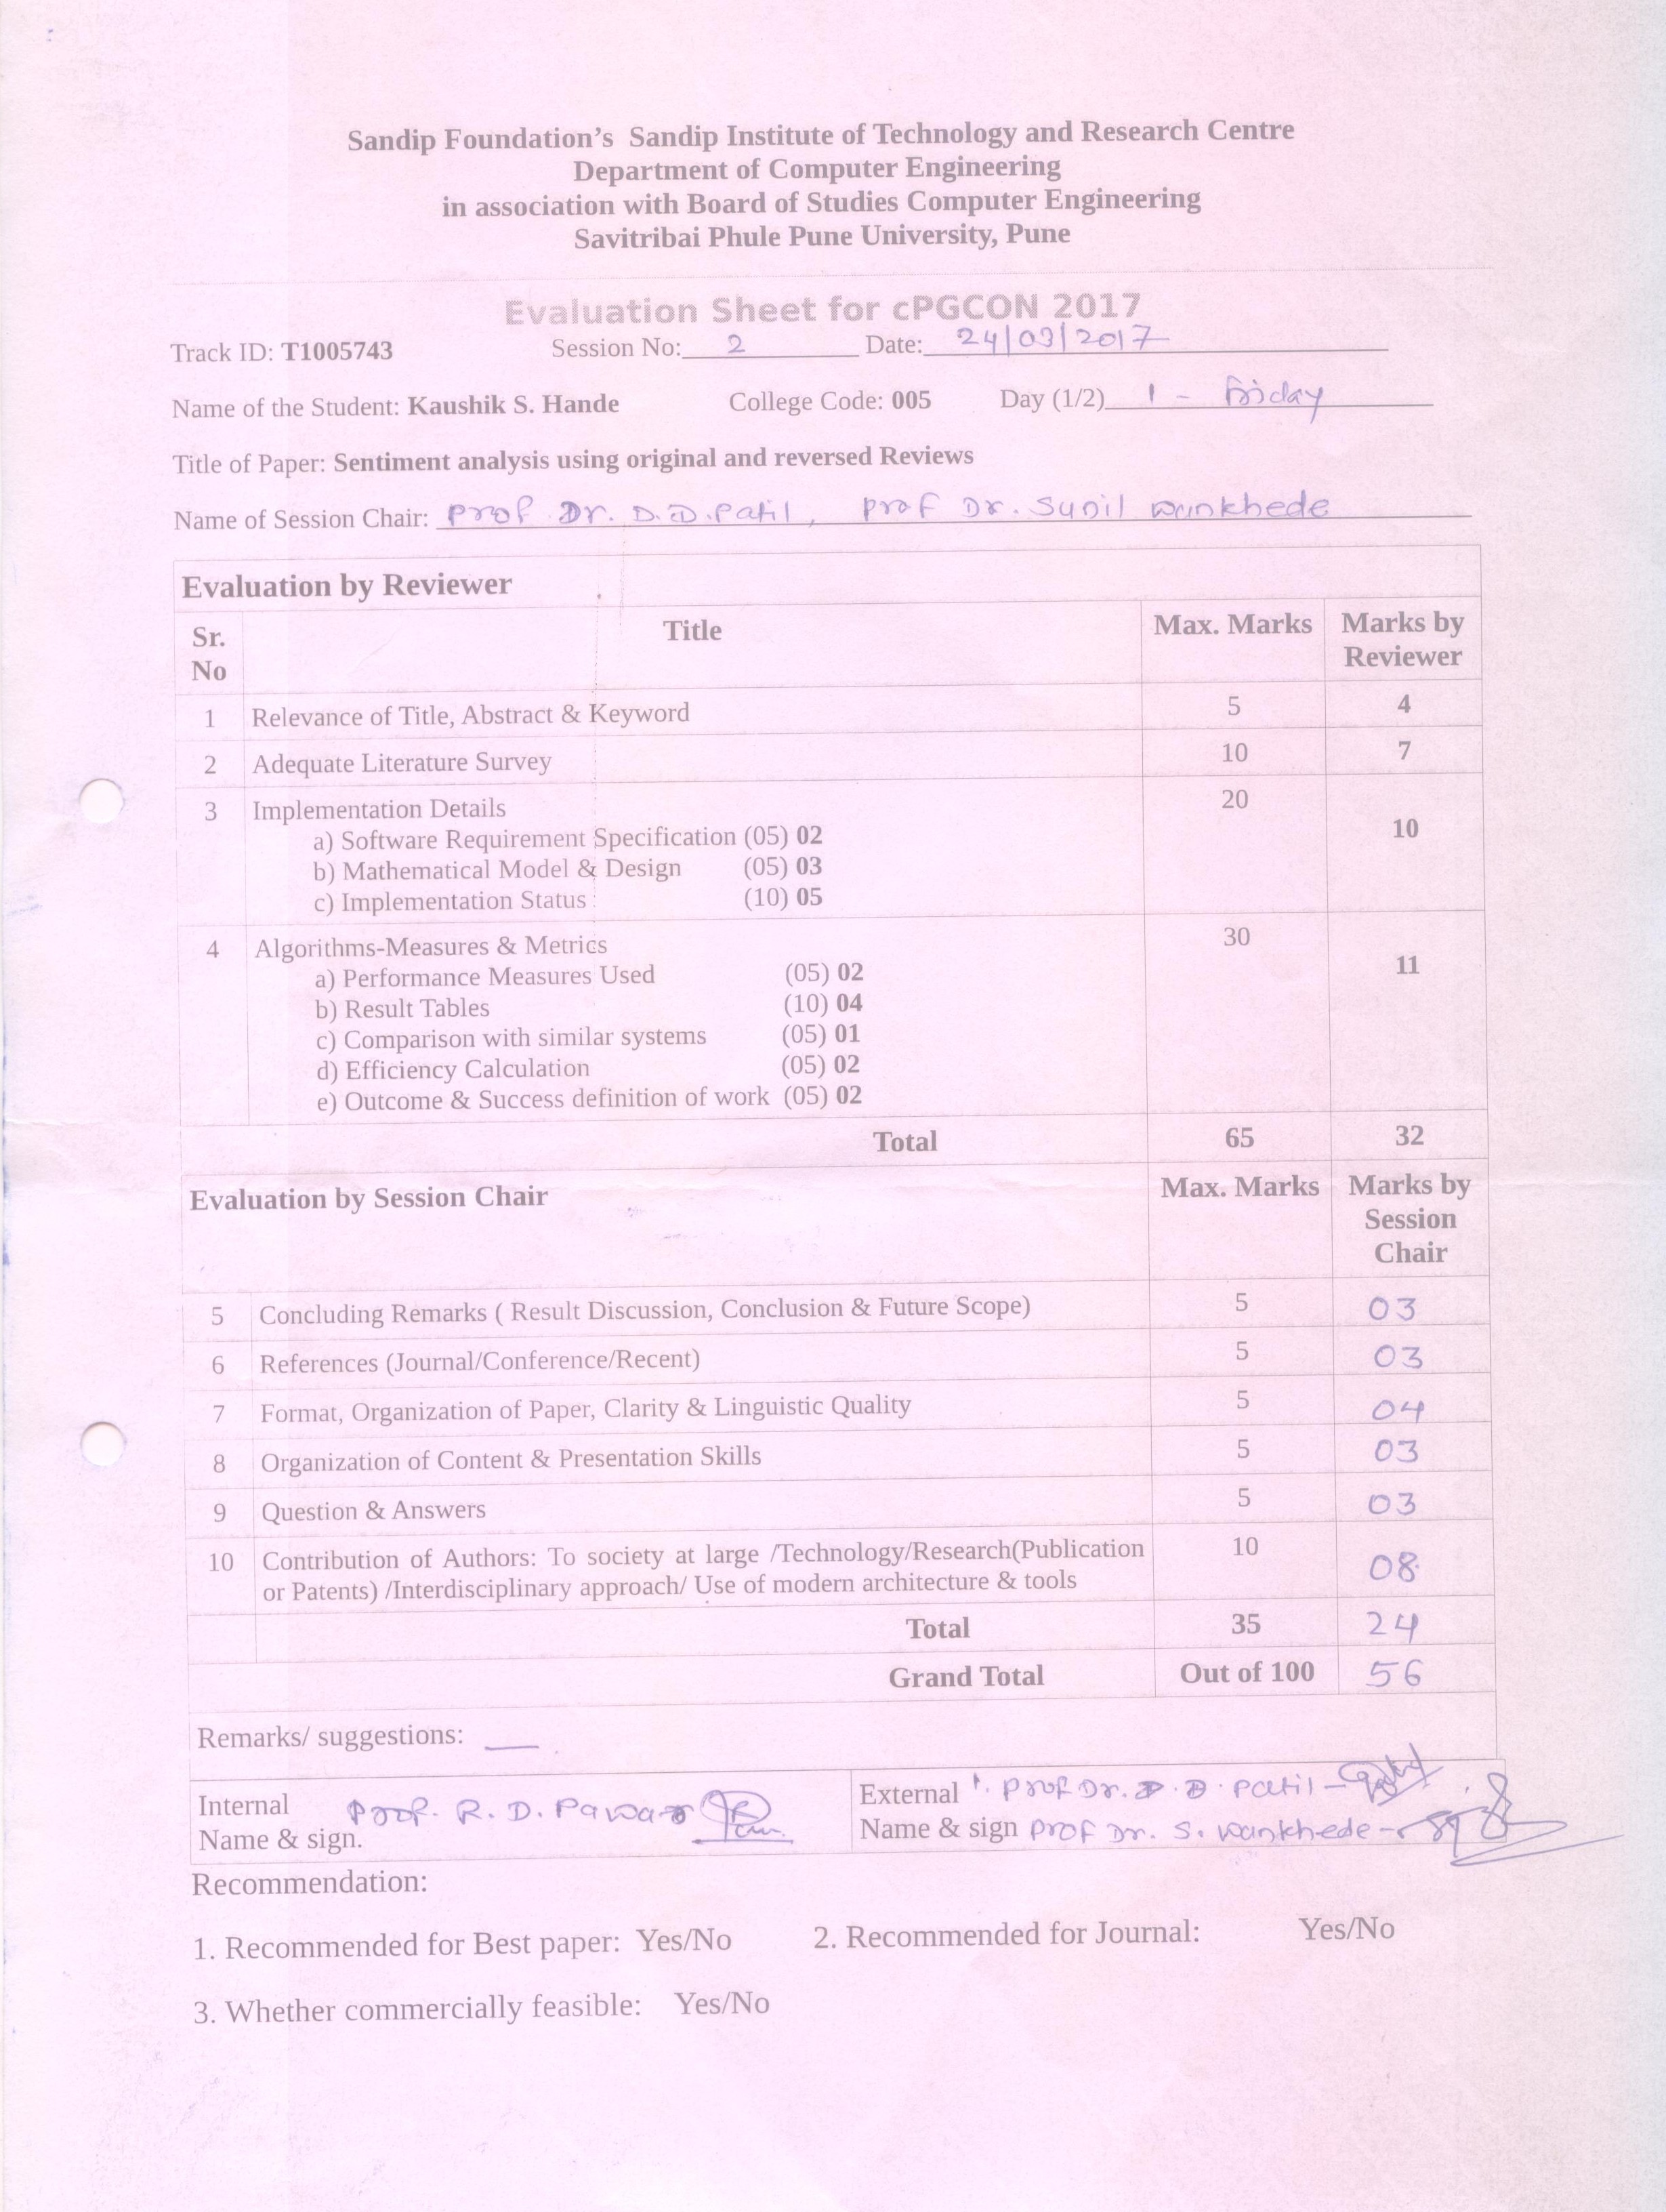 Sandip Foundation's Sandip Institute of Technology and Research Centre
Department of Computer Engineering
in association with Board of Studies Computer Engineering
Savitribai Phule Pune University, Pune
Evaluation Sheet for cPGCON 2017
Track ID: T1005743 Session No: 2 Date: 24/03/2017
Name of the Student: Kaushik S. Hande College Code: 005 Day (1/2) 1 - Friday
Title of Paper: Sentiment analysis using original and reversed Reviews
Name of Session Chair: Prof. Dr. D.D. Patil, Prof Dr. Sunil Wankhede
Evaluation by Reviewer
Sr. No Title Max. Marks Marks by Reviewer
1 Relevance of Title, Abstract & Keyword 5 4
2 Adequate Literature Survey 10 7
3 Implementation Details 20 10
a) Software Requirement Specification (05) 02
b) Mathematical Model & Design (05) 03
c) Implementation Status (10) 05
4 Algorithms-Measures & Metrics 30 11
a) Performance Measures Used (05) 02
b) Result Tables (10) 04
c) Comparison with similar systems (05) 01
d) Efficiency Calculation (05) 02
e) Outcome & Success definition of work (05) 02
Total 65 32
Evaluation by Session Chair Max. Marks Marks by Session Chair
5 Concluding Remarks ( Result Discussion, Conclusion & Future Scope) 5 03
6 References (Journal/Conference/Recent) 5 03
7 Format, Organization of Paper, Clarity & Linguistic Quality 5 04
8 Organization of Content & Presentation Skills 5 03
9 Question & Answers 5 03
10 Contribution of Authors: To society at large /Technology/Research(Publication 10 08
or Patents) /Interdisciplinary approach/ Use of modern architecture & tools
Total 35 24
Grand Total Out of 100 56
Remarks/ suggestions: __
Internal Prof. R. D. Pawar
Name & sign.
External 1. Prof Dr. D. D. Patil -
Name & sign Prof Dr. S. Wankhede -
Recommendation:
1. Recommended for Best paper: Yes/No 2. Recommended for Journal: Yes/No
3. Whether commercially feasible: Yes/No